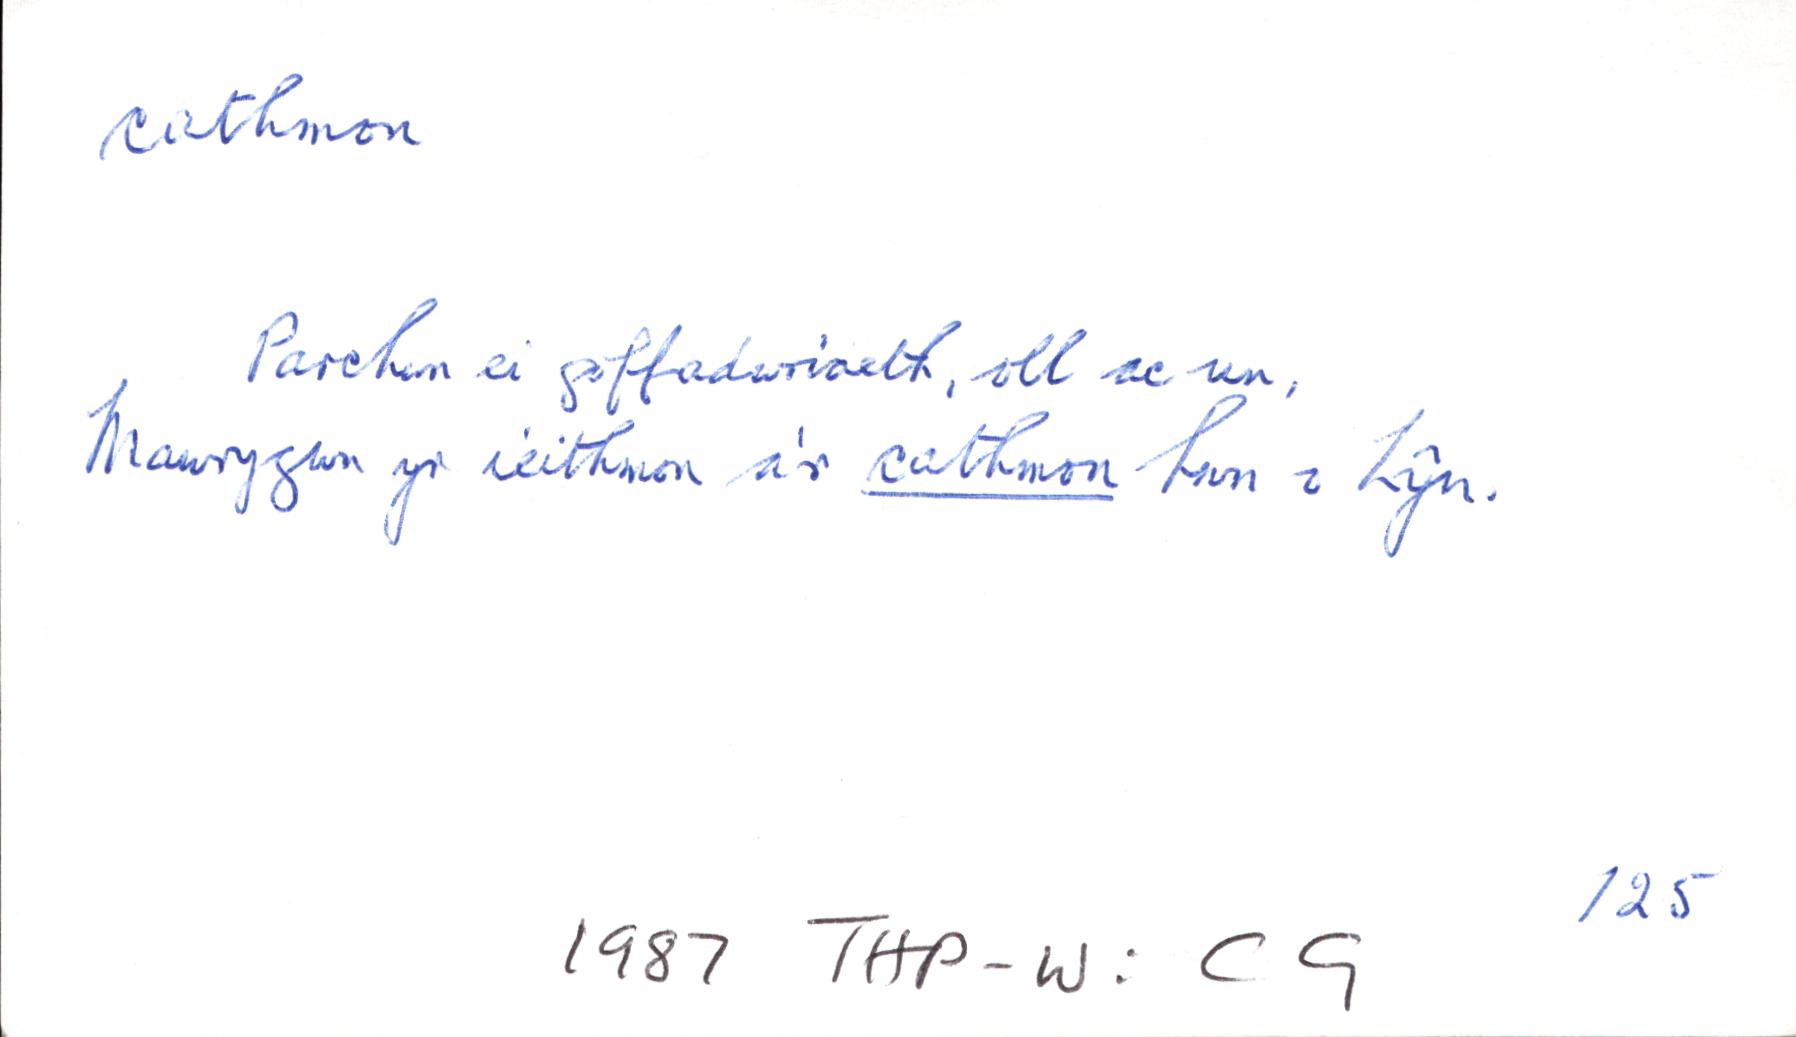 cathmon
Parchwn ei goffadwriaeth, oll ac un,
Mawrygwn yr ieithmon a'r cathmon hwn o Lŷn.
125
1987 THP-W: CG